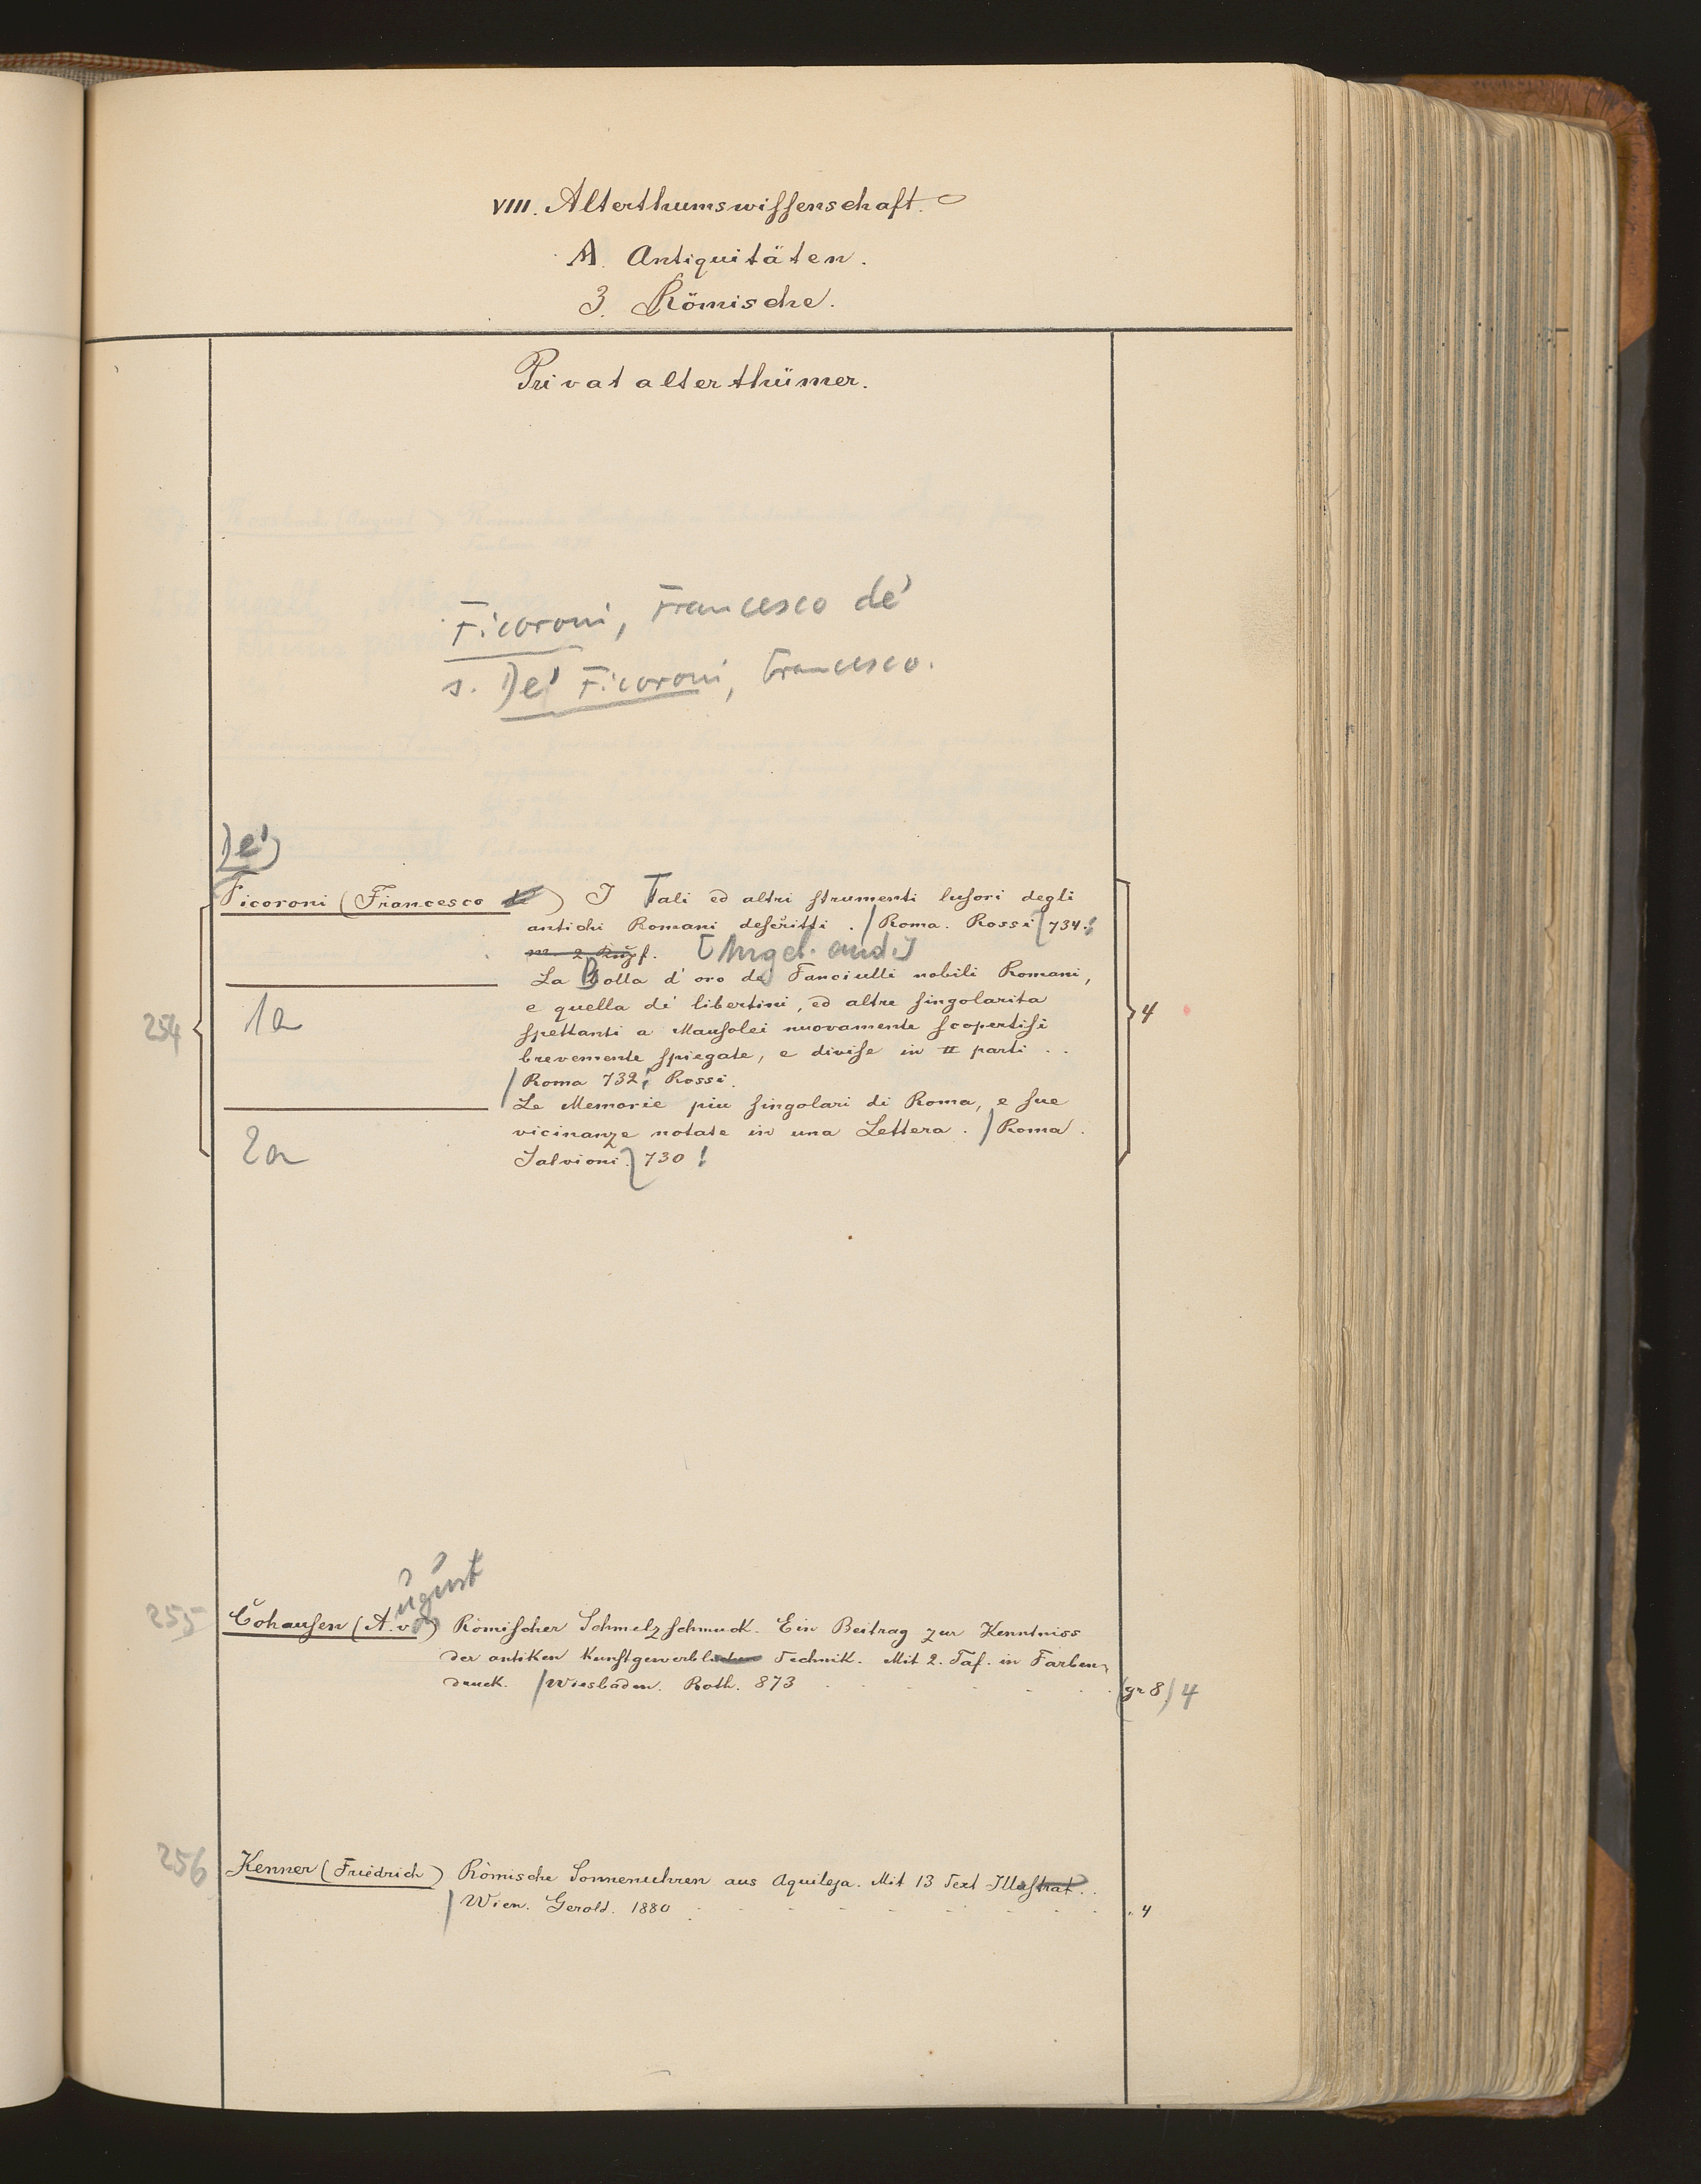 VIII. Alterthumswissenschaft.
A. Antiquitäten.
3. Römische.
Privatalterthümer.
Ficoroni, Francesco de'
s. De' Ficoroni, Francesco.
De'
Ficoroni (Francesco de) I Tali ed altri strumenti lusori degli
antichi Romani descritti . / Roma. Rossi 734.
m. 2 Kupf. [Angeb. and.]
La Bolla d'oro de Fanciulli nobili Romani,
1a
e quella de' libertini, ed altre singolarita
254
spettanti a Mausolei nuovamente scopertisi
4
brevemente spiegate, e divise in II parti . .
/ Roma 732; Rossi.
Le Memorie piu singolari di Roma, e sue
2a
vicinanze notate in una Lettera. / Roma.
Salvioni. 730!
ugust
255 Cohausen (A. v.) Römischer Schmelzschmuck. Ein Beitrag zur Kenntniss
der antiken Kunstgewerblichen Technik. Mit 2. Taf. in Farben-
druck. / Wiesbaden. Roth. 873 (gr 8) 4
256 Kenner (Friedrich) Römische Sonnenuhren aus Aquileja. Mit 13 Text Illustrat.
/ Wien. Gerold. 1880 4